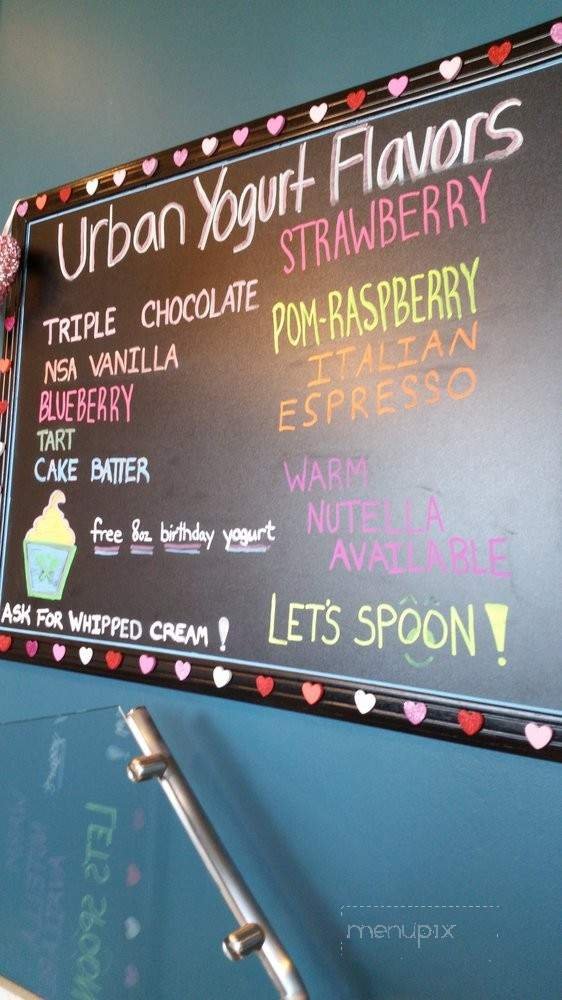 Urban Yogurt Flavors
TRIPLE CHOCOLATE
NSA VANILLA
BLUEBERRY
TART
CAKE BATTER
free 8oz birthday yogurt
ASK FOR WHIPPED CREAM!
STRAWBERRY
POM-RASPBERRY
ITALIAN
ESPRESSO
WARM
NUTELLA
AVAILABLE
LET'S SPOON!
LETS SPOON
menupix